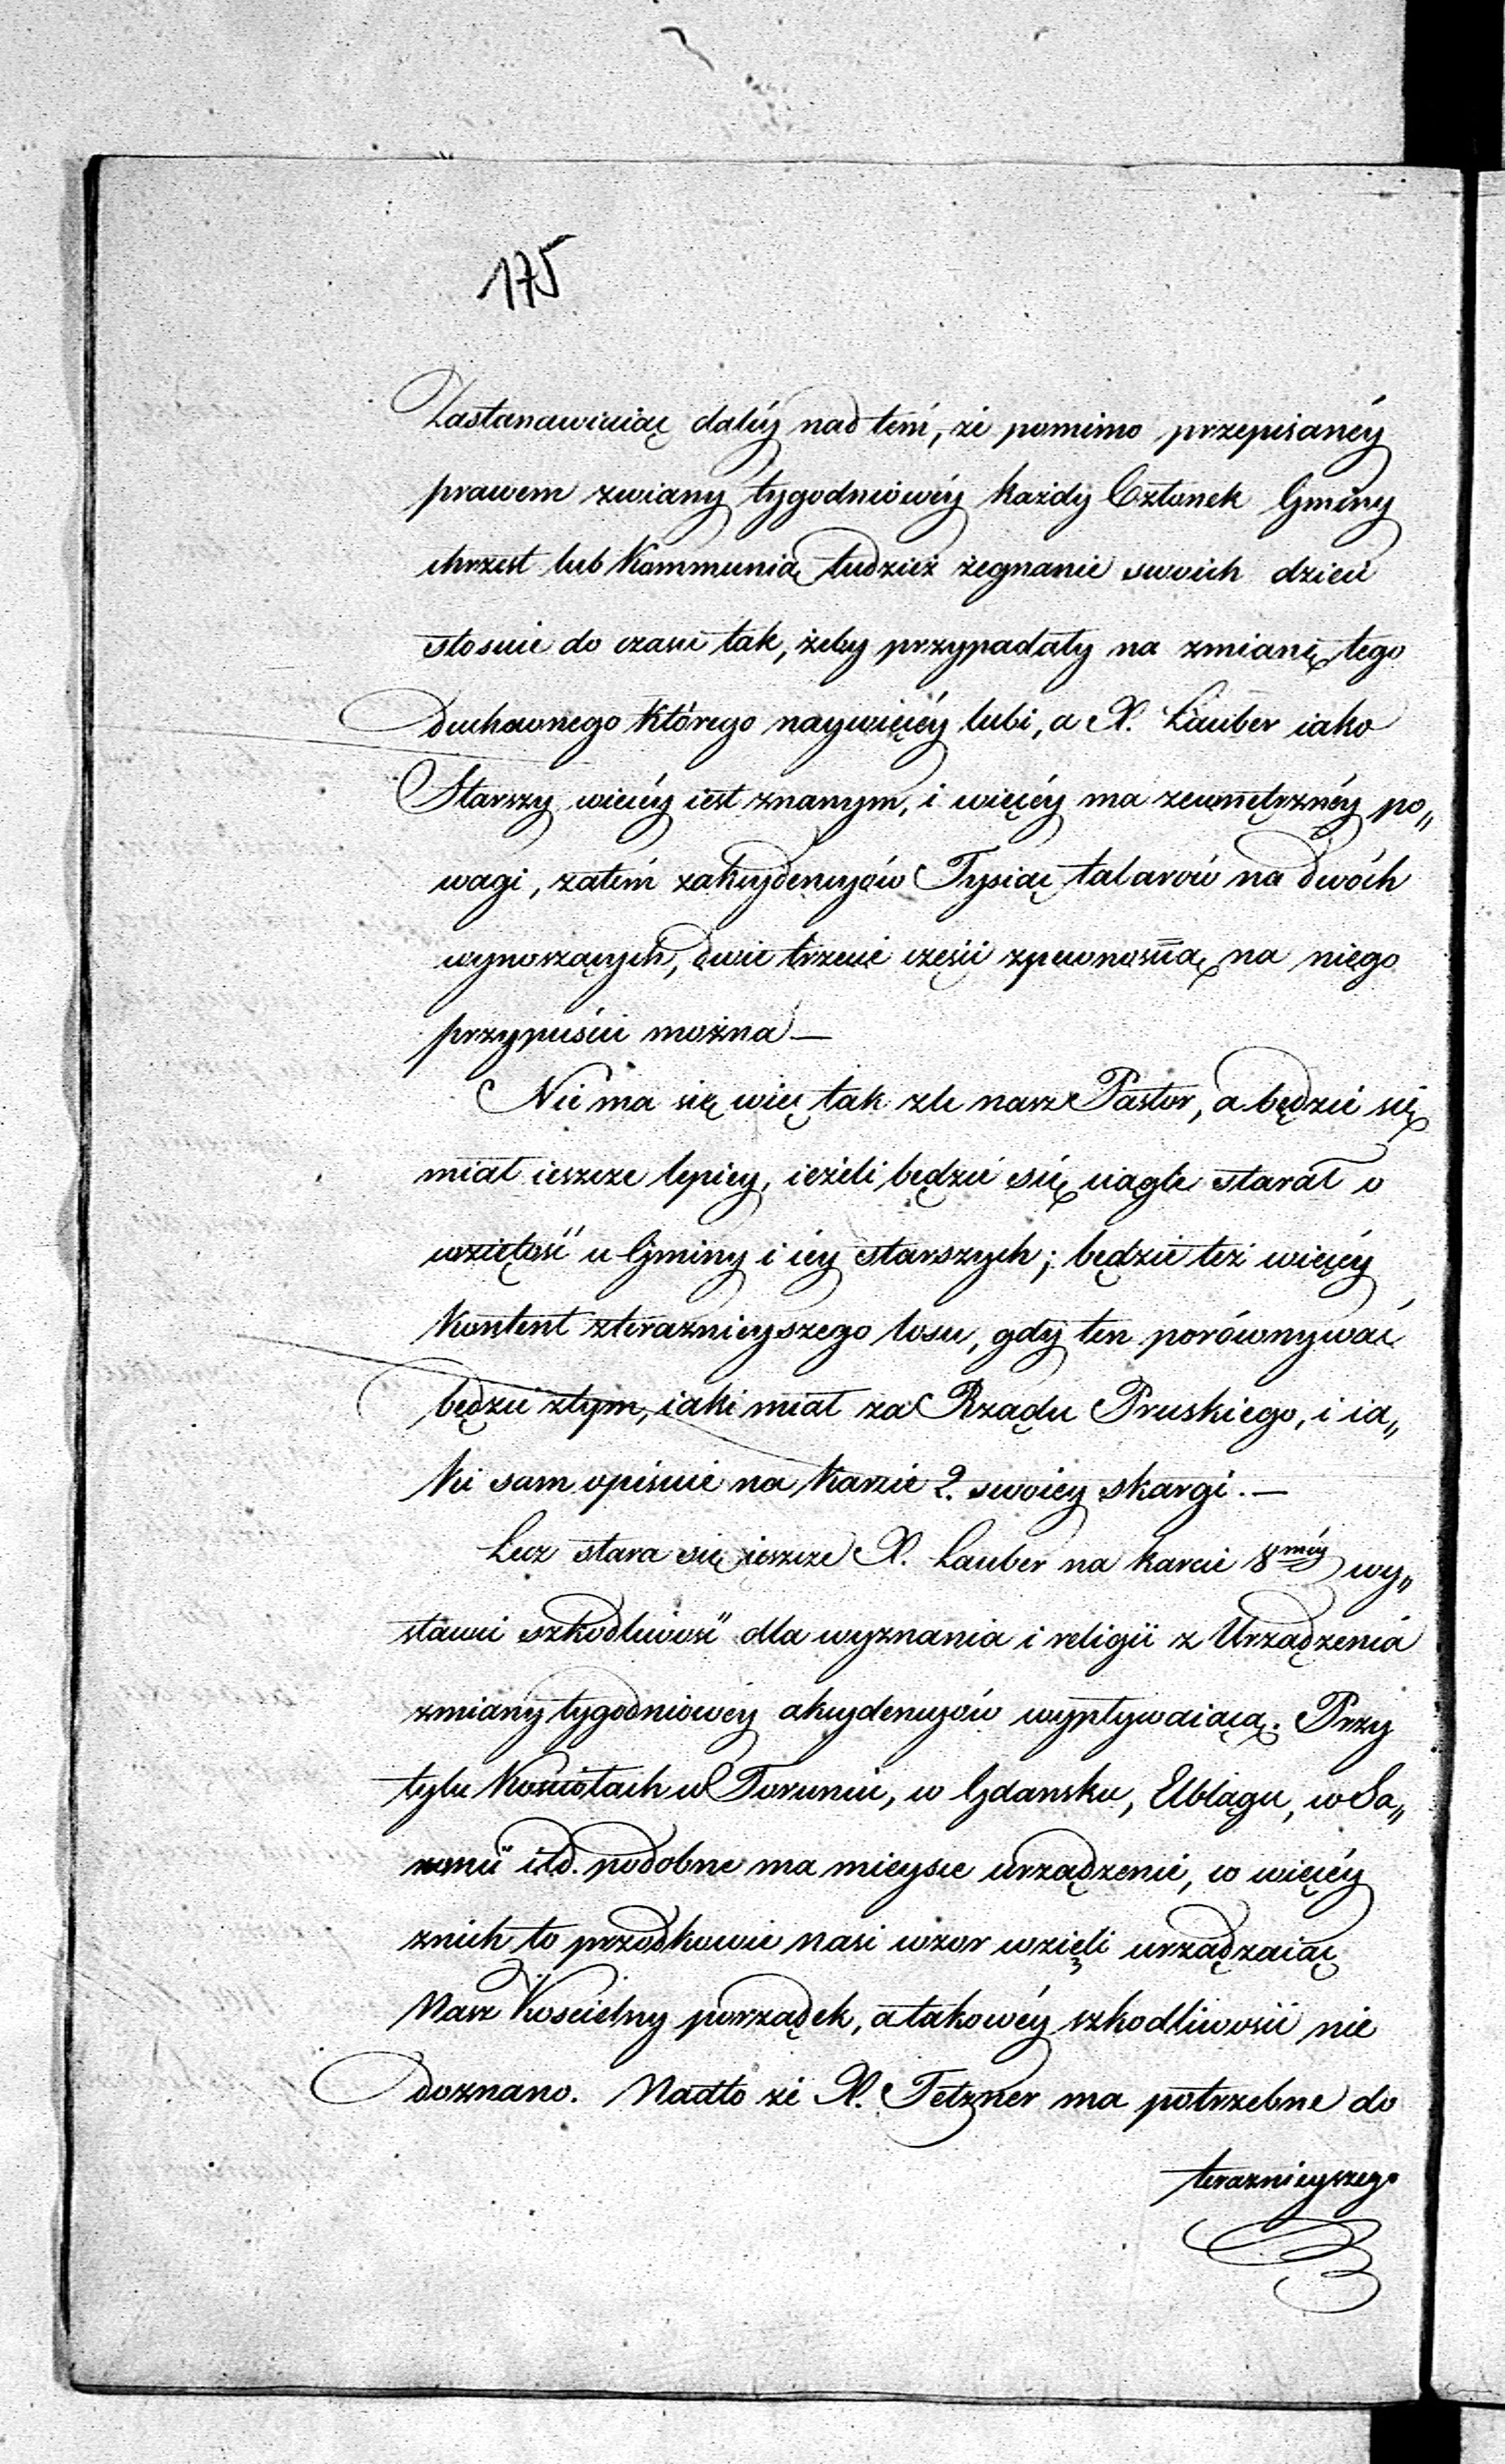 175
Zastanawiaiąc daléy nad tém, że pomimo przepisanéy
prawem zmiany tygodniowéy każdy Członek Gminy
chrzest lub Kommunią tudzież żegnanie swoich dzieci
stosuie do czasu tak, żeby przypadały na zmianę tego
Duchownego którego naywięcéy lubi, a X. Lauber iako
Starszy więcéy iest znanym, i więcéy ma zewnętrznéy po„
wagi, zatém zakcydencyów Tysiąc talarów na dwóch
wynoszących, dwie trzecie części zpewnością na niego
przypuścić można —
Nie ma się więc tak zle nasz Pastor, a będzie się
miał ieszcze lepiey, ieżeli będzie się ciągle starał o
wziętość u Gminy i iey starszych; będzie też więcéy
kontent zterazniéyszego losu, gdy ten porównywać
będzie ztym, iaki miał za Rządu Pruskiego, i ia„
ki sam opisuie na karcie 2. swoiey skargi. —
Lecz stara się ieszcze X. Lauber na karcie 8méy wy„
stawić szkodliwość dla wyznania i religii z Urządzenia
zmiany tygodniowéy akcydencyów wypływaiącą. Przy
tylu Kościołach w Toruniu, w Gdansku, Elblągu, w Sa„
xonii itd. podobne ma mieysce urządzenie, w więcéy
znich to przodkowie nasi wzor wzięli urządzaiąc
Nasz Kościelny porządek, a takowéy szkodliwości nie
doznano. Nadto że X. Tetzner ma potrzebne do
teraznieyszego